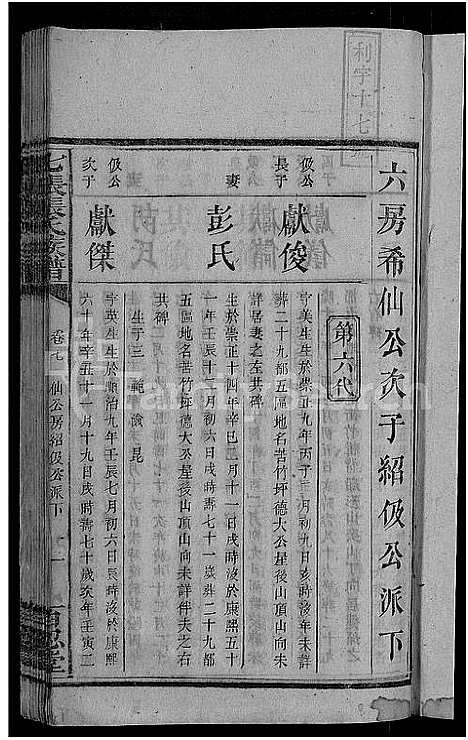 利字十七
六房希仙公次子紹伋公派下
第六代
伋公長子
獻俊
字美生生於崇正九年丙子二月初九日亥時歿年未詳
葬二十九都五區地名苦竹坪德大公星後山頂山向未
詳居妻之左共碑
妻
彭氏
生於崇正十四年辛巳三月十一日戌時沒於康熙五十
一年壬辰十二月初六日戌時壽七十一歲葬二十九都
五區地名苦竹坪德大公星後山頂山向未詳伴夫之右
共碑
生子三 範 諭 昆
伋公次子
獻傑
字英生生於順治九年壬辰七月初六日辰時沒於康熙
六十年辛丑十一月十九日戌時壽七十歲次年壬寅二
張氏族譜
卷七
仙公房紹伋公派下
一
百忍堂